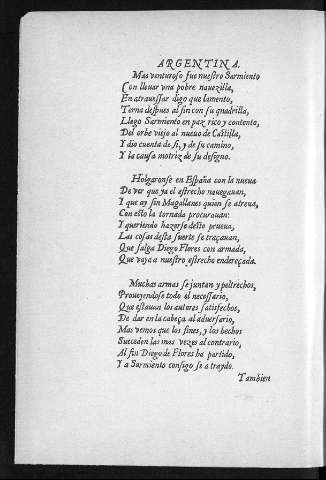 ARGENTINA.
Mas venturoso fue nuestro Sarmiento
Con lleuar vna pobre nauezilla,
En atrauessar digo que lamento,
Torna despues al fin con su quadrilla,
Llego Sarmiento en paz rico y contento,
Del orbe viejo al nueuo de Castilla,
Y dio cuenta de si, y de su camino,
Y la causa motriz de su designo.
Holgaronse en España con la nueua
De ver que ya el estrecho nauegauan,
Y que ay sin Magallanes quien se atreua,
Con esto la tornada procurauan:
Y queriendo hazerse desto prueua,
Las cosas desta suerte se traçauan,
Que salga Diego Flores con armada,
Que vaya a nuestro estrecho endereçada.
Muchas armas se juntan y peltrechos,
Proueyendose todo el necessario,
Que estauan los autores satisfechos,
De dar en la cabeça al aduersario,
Mas vemos que los fines, y los hechos
Succeden las mas vezes al contrario,
Al fin Diego de Flores ha partido,
Y a Sarmiento consigo se a traydo.
Tambien